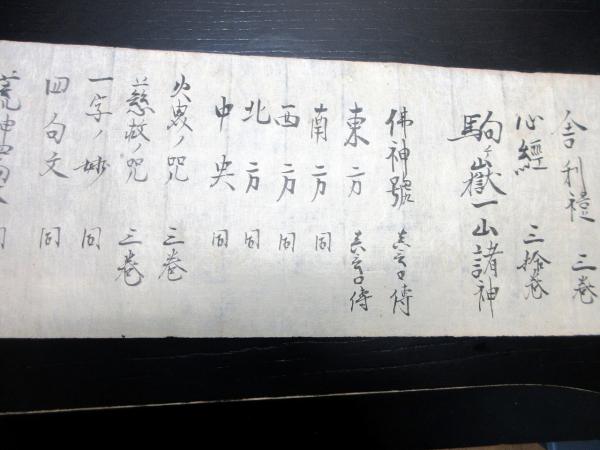 舎利禮 三巻
心經 三拾巻
駒ヶ嶽一山諸神
佛神號 真言口傳
東方 真言口傳
南方 同
西方 同
北方 同
中央 同
火界ノ咒 三巻
慈救ノ咒 三巻
一字ノ 同
四句文 同
荒神 同